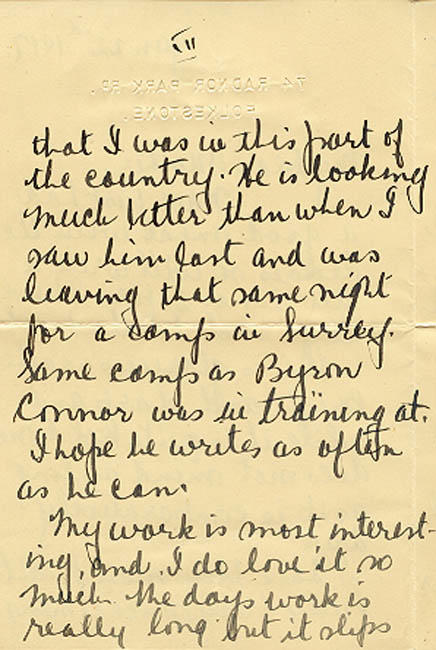 VII
74 RADNOR PARK RD.
FOLKESTONE.
that I was in this part of
the country. He is looking
much better than when I
saw him last and was
leaving that same night
for a camp in Surrey.
Same camp as Byron
Connor was in training at.
I hope he writes as often
as he can.
My work is most interest-
ing, and I do love it so
much. The days work is
really long but it slips